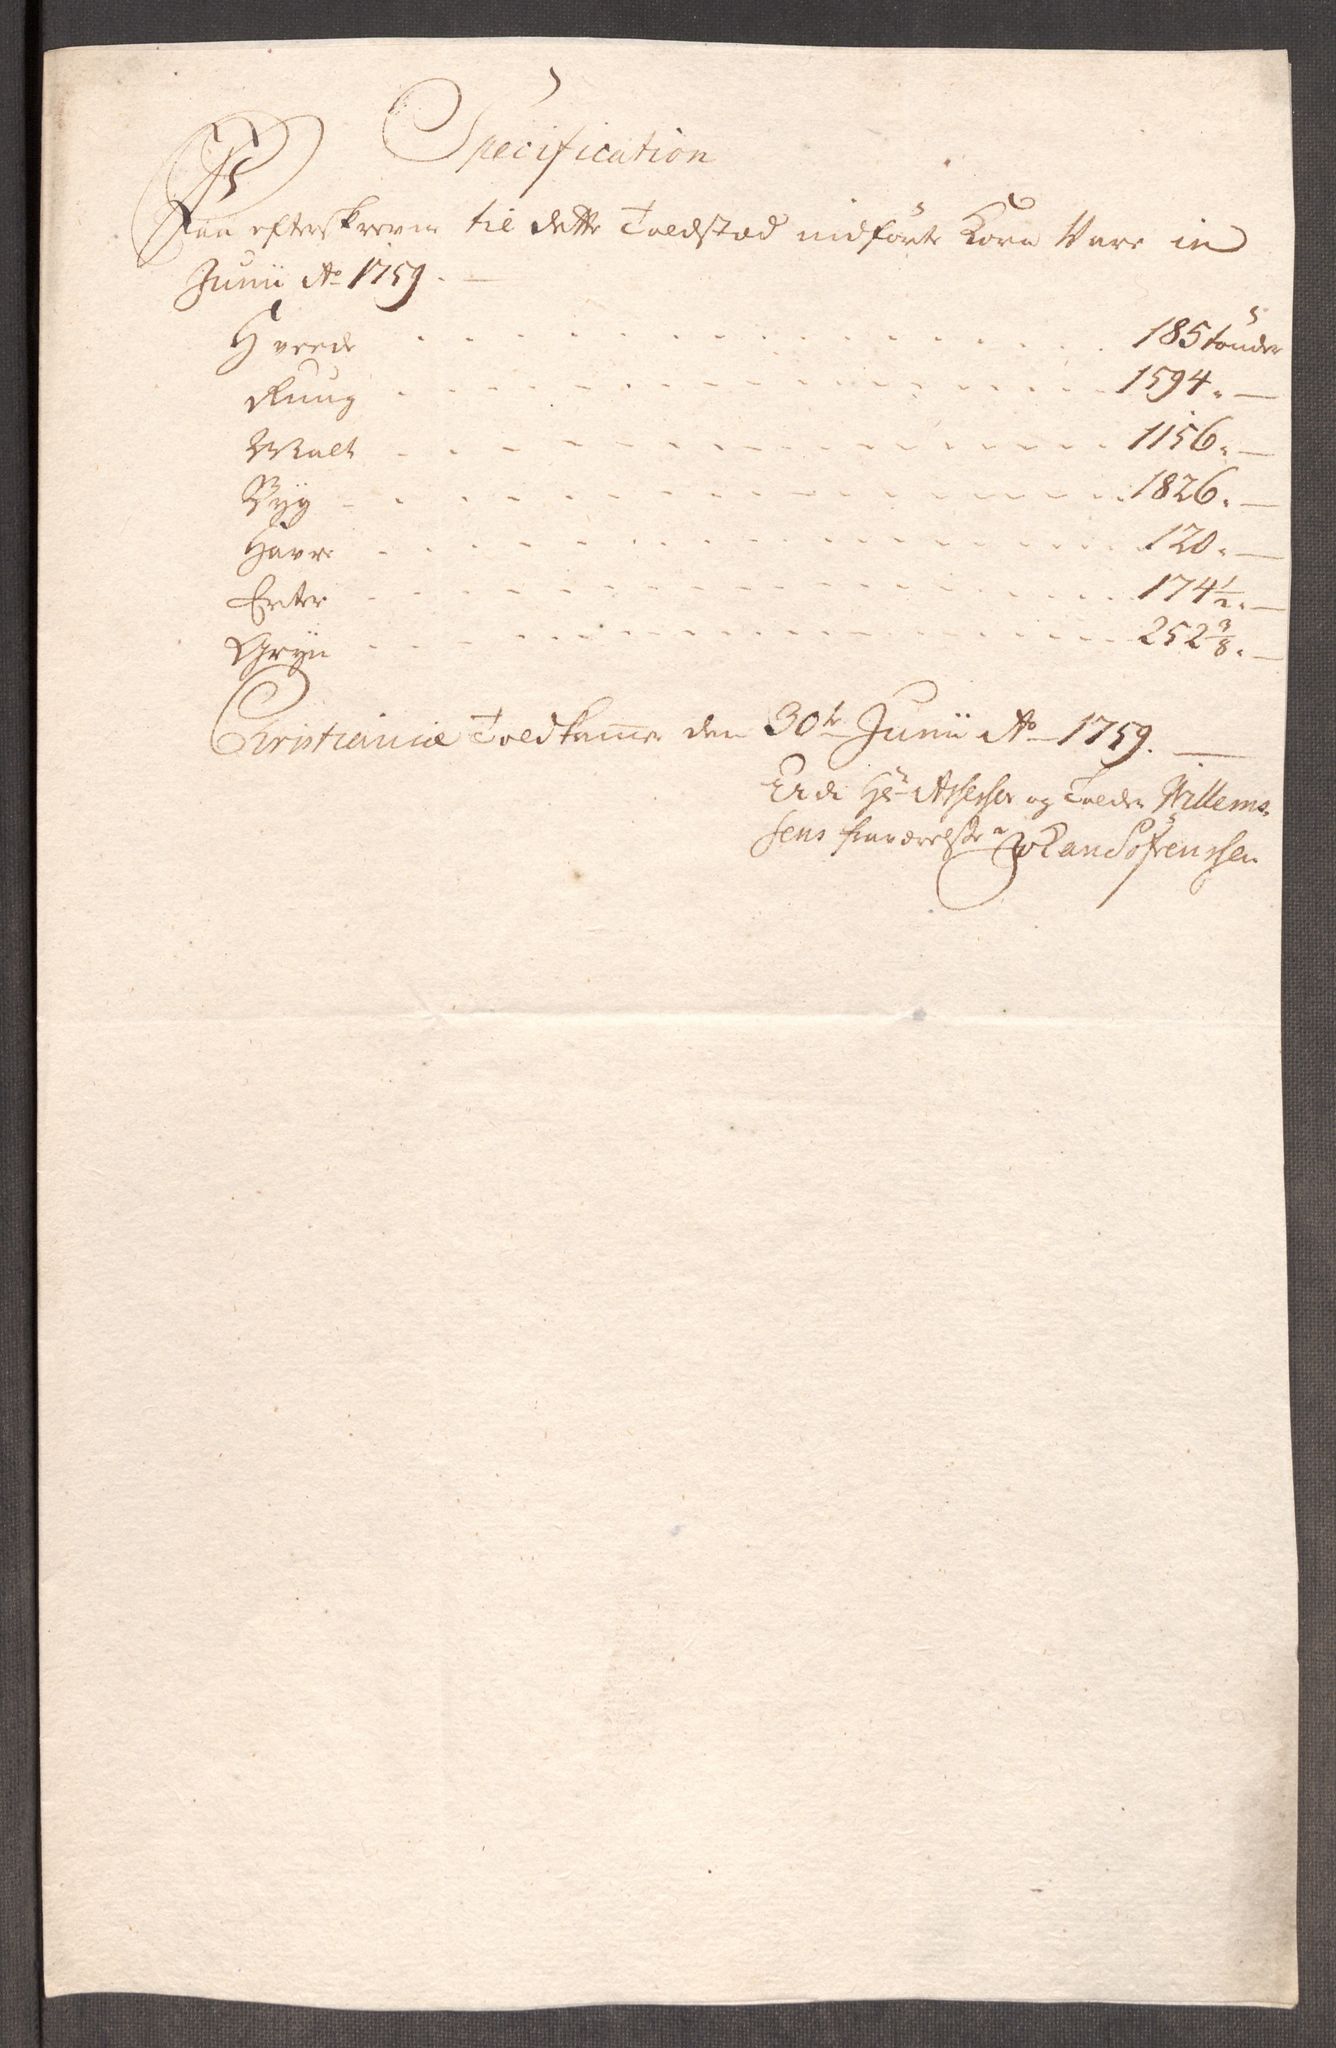 Specification
Paa efterskrevne til dette Toldstæd indførte Korn Vare in
Junii Ao 1759.
Hvede 185 tønder
Ruug 1594. —
Malt 1156. —
Byg 1826. —
Havre 120. —
Erter 174 1/2. —
Gryn 252 3/8. —
Christianiæ Toldkammer den 30te Junii Ao 1759.
Hr Assessor og Tolder Willems-
sens fraværelse Søfrenssen